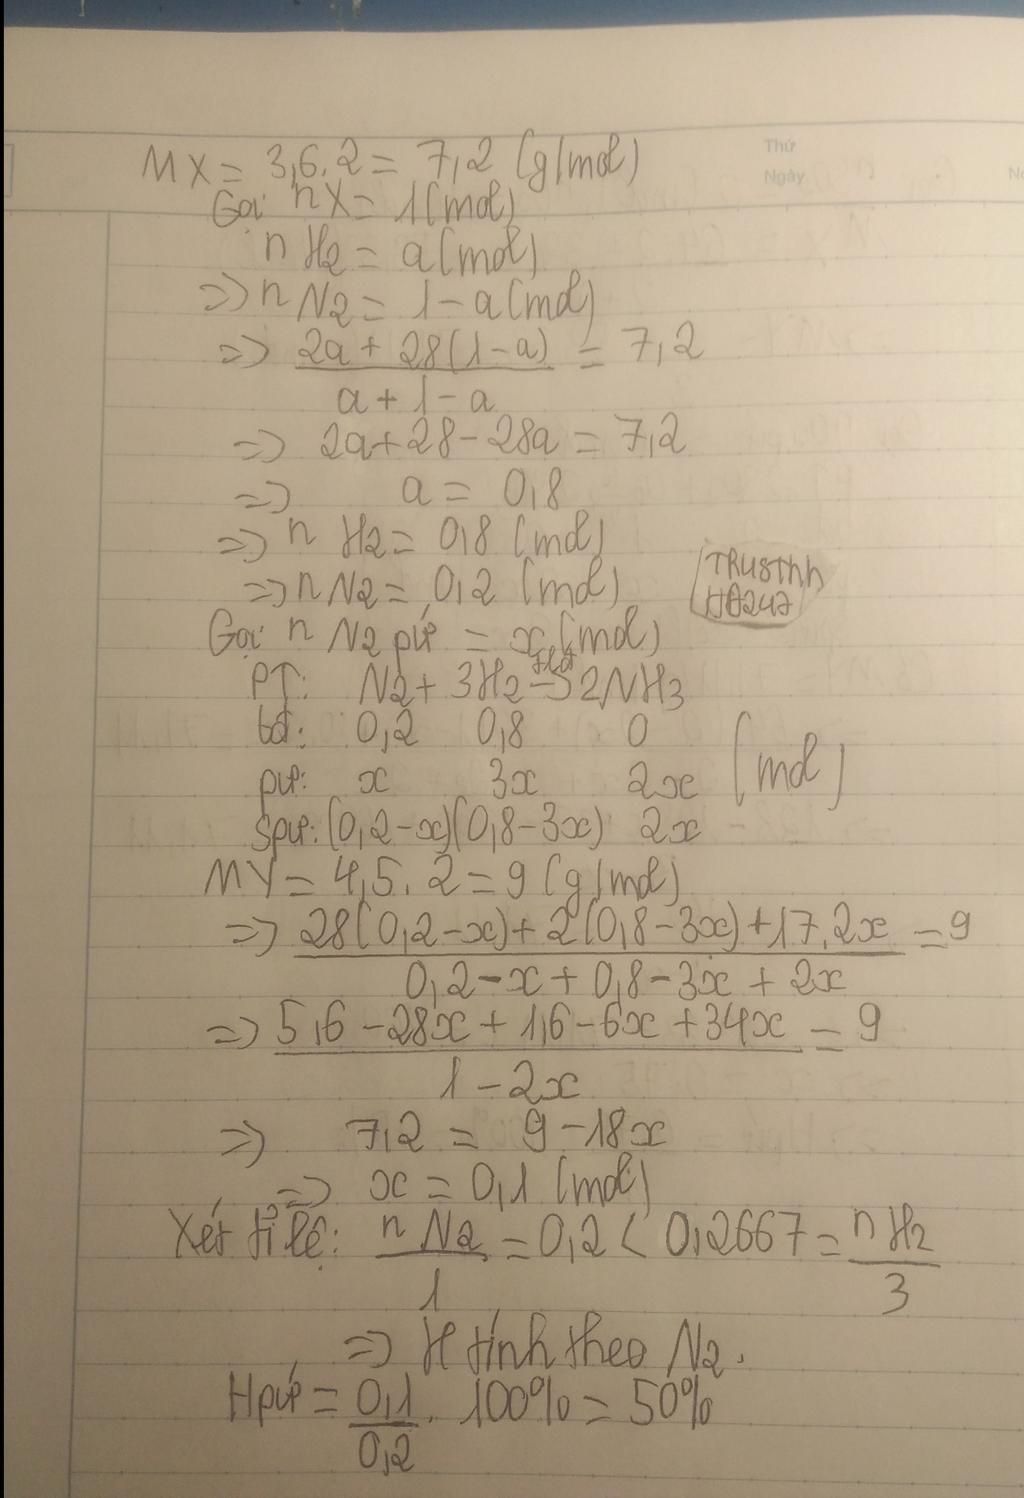 Thứ
Ngày
MX = 3,6.2 = 7,2 (g/mol)
Gọi nX = 1(mol)
nH2 = a(mol)
=> nN2 = 1-a(mol)
=> (2a + 28(1-a))/(a + 1 - a) = 7,2
=> 2a+28-28a = 7,2
=> a = 0,8
=> nH2 = 0,8 (mol)
=> nN2 = 0,2 (mol)
TRUSThh
HĐ247
Gọi nN2 pứ = x(mol)
PT: N2 + 3H2 -> 2NH3
bđ: 0,2 0,8 0
pứ: x 3x 2x (mol)
Spứ: (0,2-x) (0,8-3x) 2x
MY = 4,5.2 = 9 (g/mol)
=> (28(0,2-x)+2(0,8-3x)+17.2x)/(0,2-x+0,8-3x+2x) = 9
=> (5,6-28x+1,6-6x+34x)/(1-2x) = 9
=> 7,2 = 9-18x
=> x = 0,1 (mol)
Xét tỉ lệ: nN2/1 = 0,2 < 0,2667 = nH2/3
=> H tính theo N2.
Hpứ = 0,1/0,2 . 100% = 50%